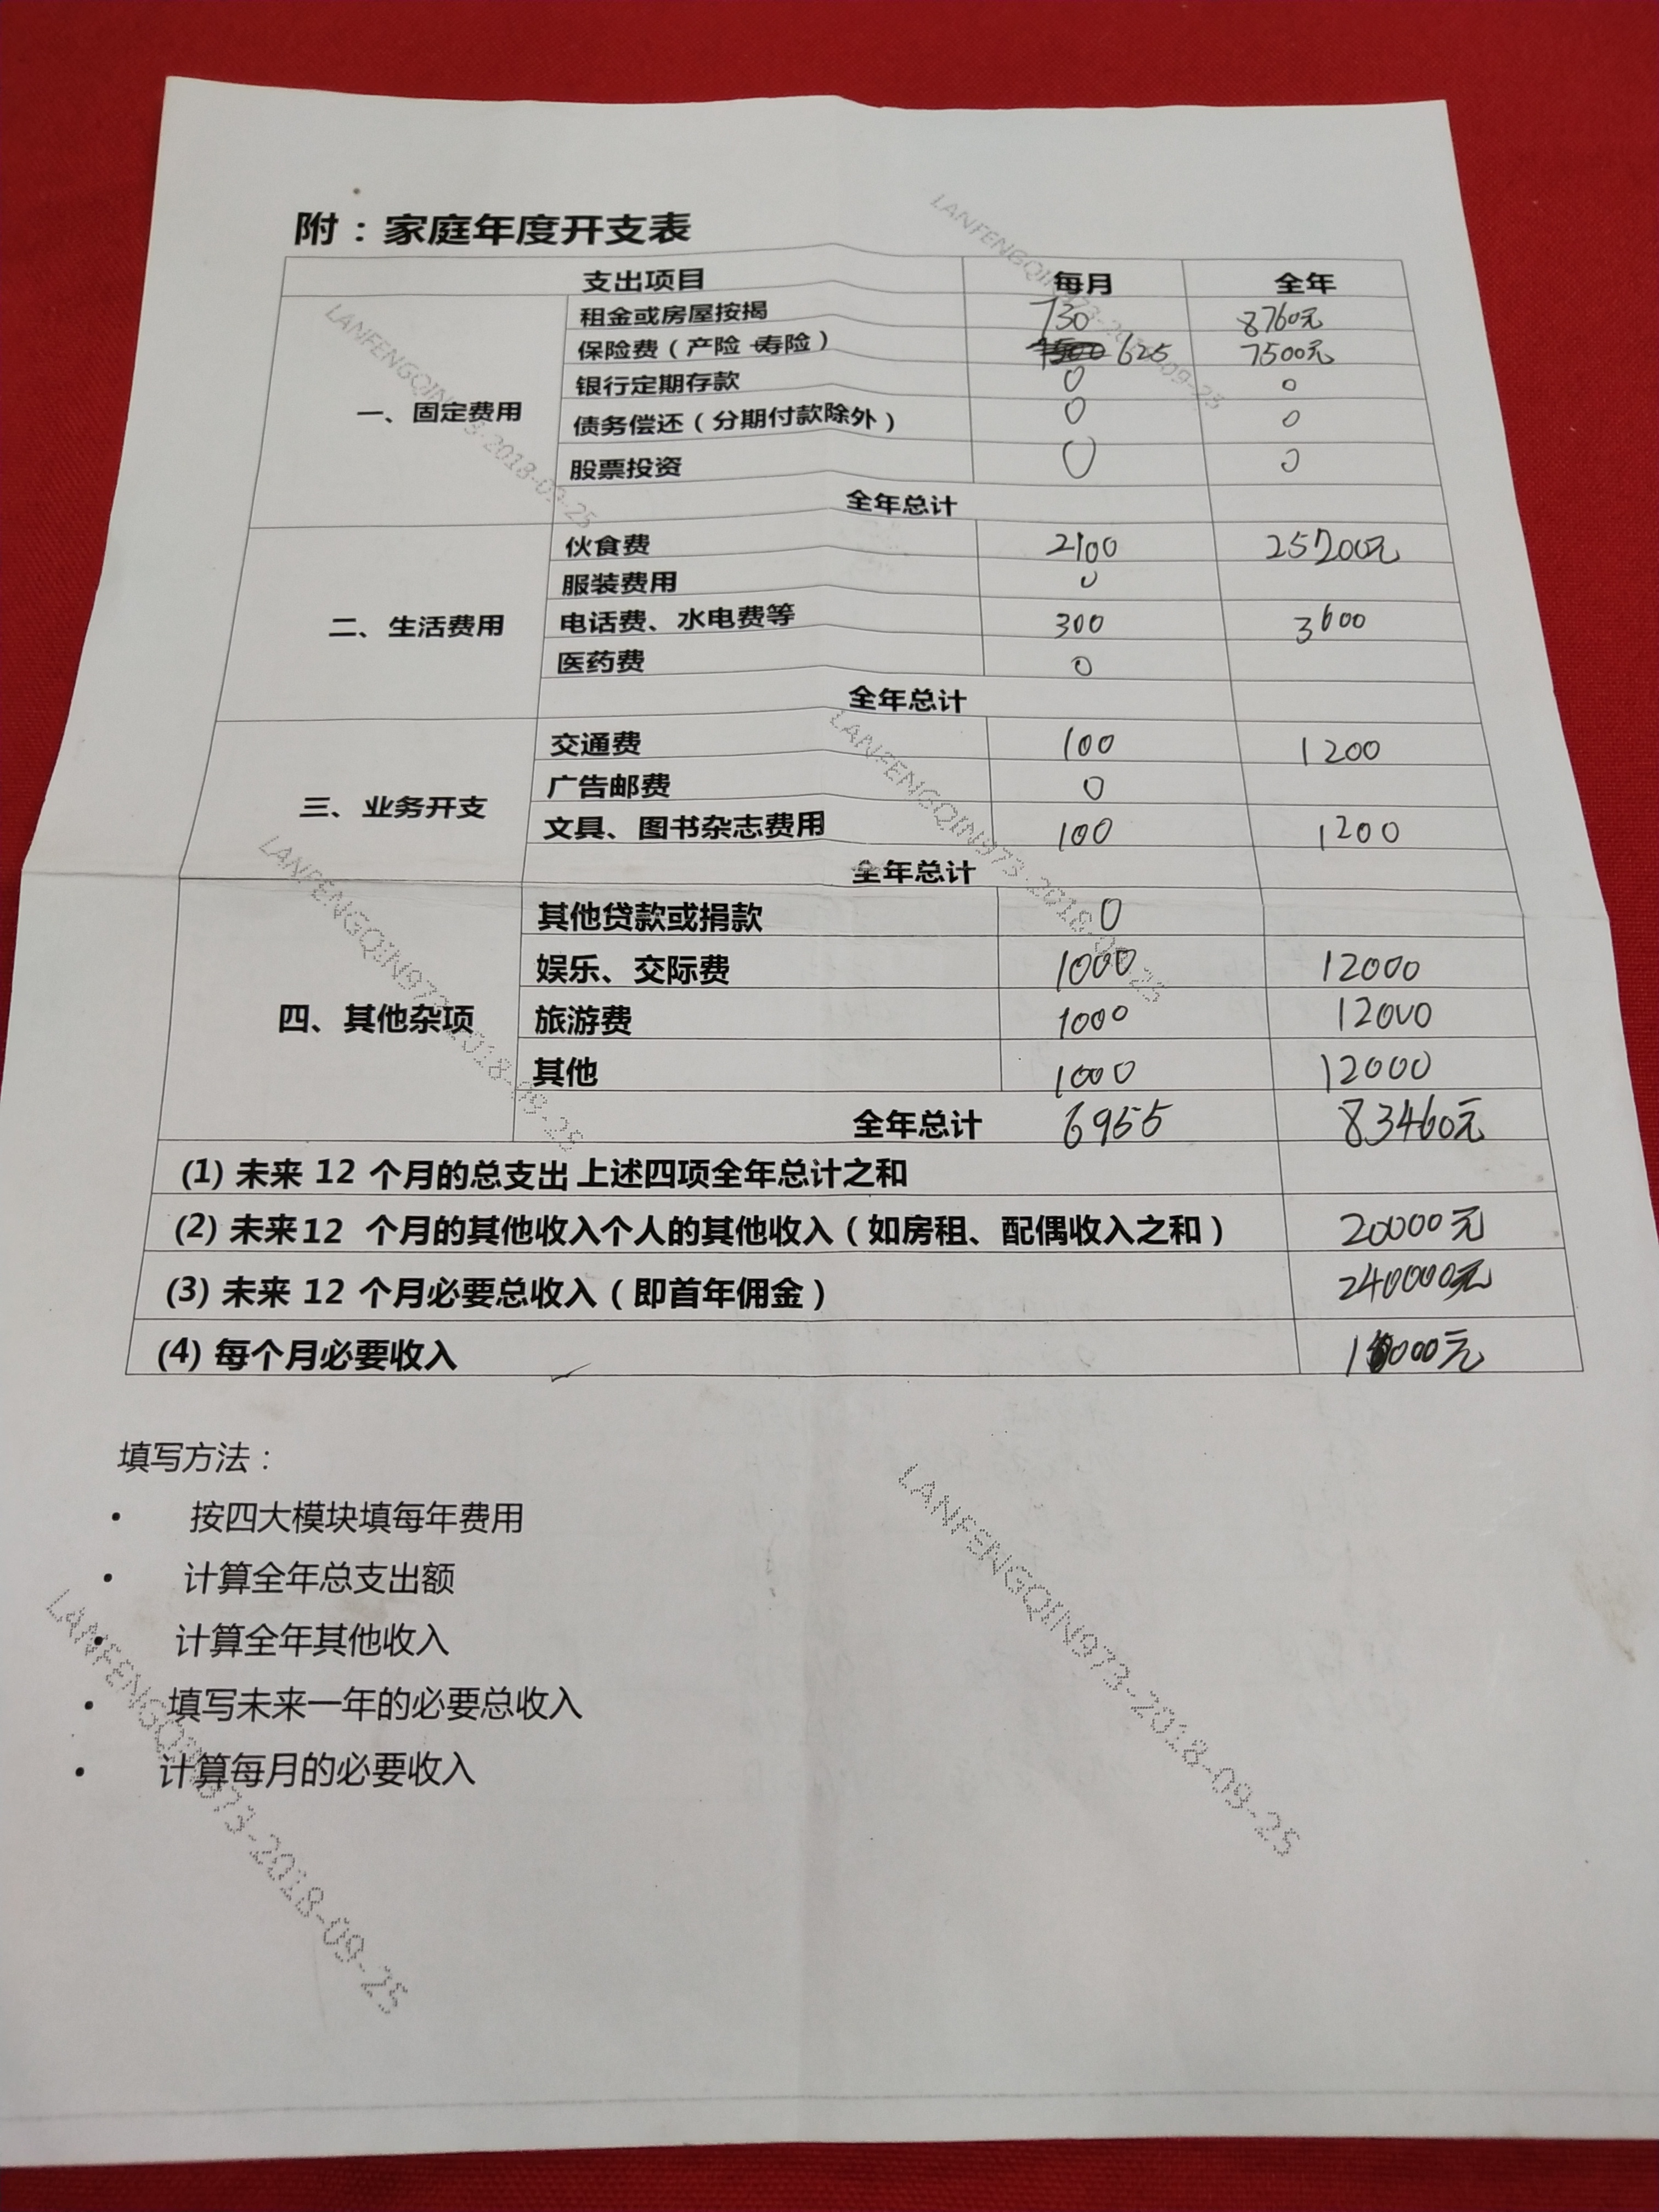 附：家庭年度开支表
支出项目 每月 全年
一、固定费用
租金或房屋按揭 730 8760元
保险费（产险+寿险） 625 7500元
银行定期存款 0 0
债务偿还（分期付款除外） 0 0
股票投资 0 0
全年总计
二、生活费用
伙食费 2100 25200元
服装费用 0
电话费、水电费等 300 3600
医药费 0
全年总计
三、业务开支
交通费 100 1200
广告邮费 0
文具、图书杂志费用 100 1200
全年总计
四、其他杂项
其他贷款或捐款 0
娱乐、交际费 1000 12000
旅游费 1000 12000
其他 1000 12000
全年总计 6955 83460元
(1) 未来 12 个月的总支出 上述四项全年总计之和
(2) 未来12 个月的其他收入个人的其他收入（如房租、配偶收入之和） 20000元
(3) 未来 12 个月必要总收入（即首年佣金） 240000元
(4) 每个月必要收入
填写方法：
• 按四大模块填每年费用
• 计算全年总支出额
• 计算全年其他收入
• 填写未来一年的必要总收入
• 计算每月的必要收入
LANFENGQIN973-2018-09-25
LANFENGQIN973-2018-09-25
LANFENGQIN973-2018-09-25
LANFENGQIN973-2018-09-25
LANFENGQIN973-2018-09-25
LANFENGQIN973-2018-09-25